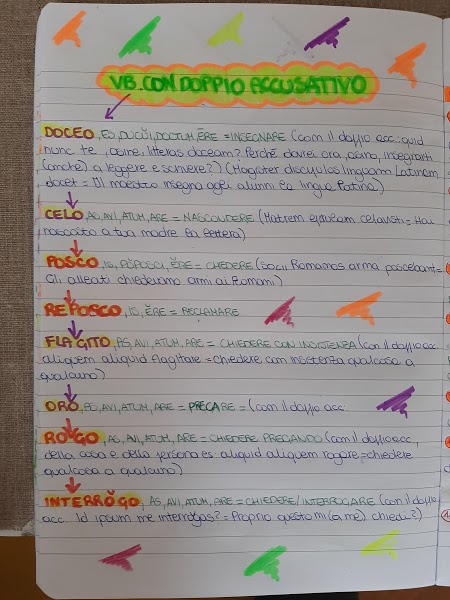 VB. CON DOPPIO ACCUSATIVO
DOCEO, ES, DOCUI, DOCTUM, ĒRE = INSEGNARE (com il doppio acc.: quid
nunc te, asine, litteras doceam? Perché dovrei ora, asino, insegnarti
(anche) a leggere e scrivere?) (Magister discipulos linguam Latinam
docet = Il maestro insegna agli alunni la lingua latina)
CELO, AS, AVI, ATUM, ARE = NASCONDERE (Matrem epistulam celavisti = Hai
nascosto a tua madre la lettera)
POSCO, IS, POPOSCI, ĔRE = CHIEDERE (socii Romanos arma poscebant =
Gli alleati chiedevano armi ai Romani)
REPOSCO, IS, ĔRE = RECLAMARE
FLAGITO, AS, AVI, ATUM, ARE = CHIEDERE CON INSISTENZA (con il doppio acc.
aliquem aliquid flagitare = chiedere com insistenza qualcosa a
qualcuno)
ORO, AS, AVI, ATUM, ARE = PREGARE = (com il doppio acc.
ROGO, AS, AVI, ATUM, ARE = CHIEDERE PREGANDO (com il doppio acc.
della cosa e della persona es aliquid aliquem rogare = chiedere
qualcosa a qualcuno)
INTERRŎGO, AS, AVI, ATUM, ARE = CHIEDERE/INTERROGARE (com il doppio
acc. Id ipsum me interrogas? = Proprio questo mi (a me) chiedi?)